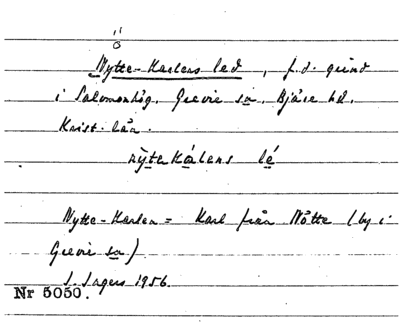 ö
Nytte-Karlens led, f.d. grind
i Salomonhög, Grevie sn, Bjäre hd,
Krist. län.
nỳta kàlens lé
Nytte-Karlen = Karl från Nötte (by i
Grevie sn)
S. Sagers 1956.
Nr 5050.